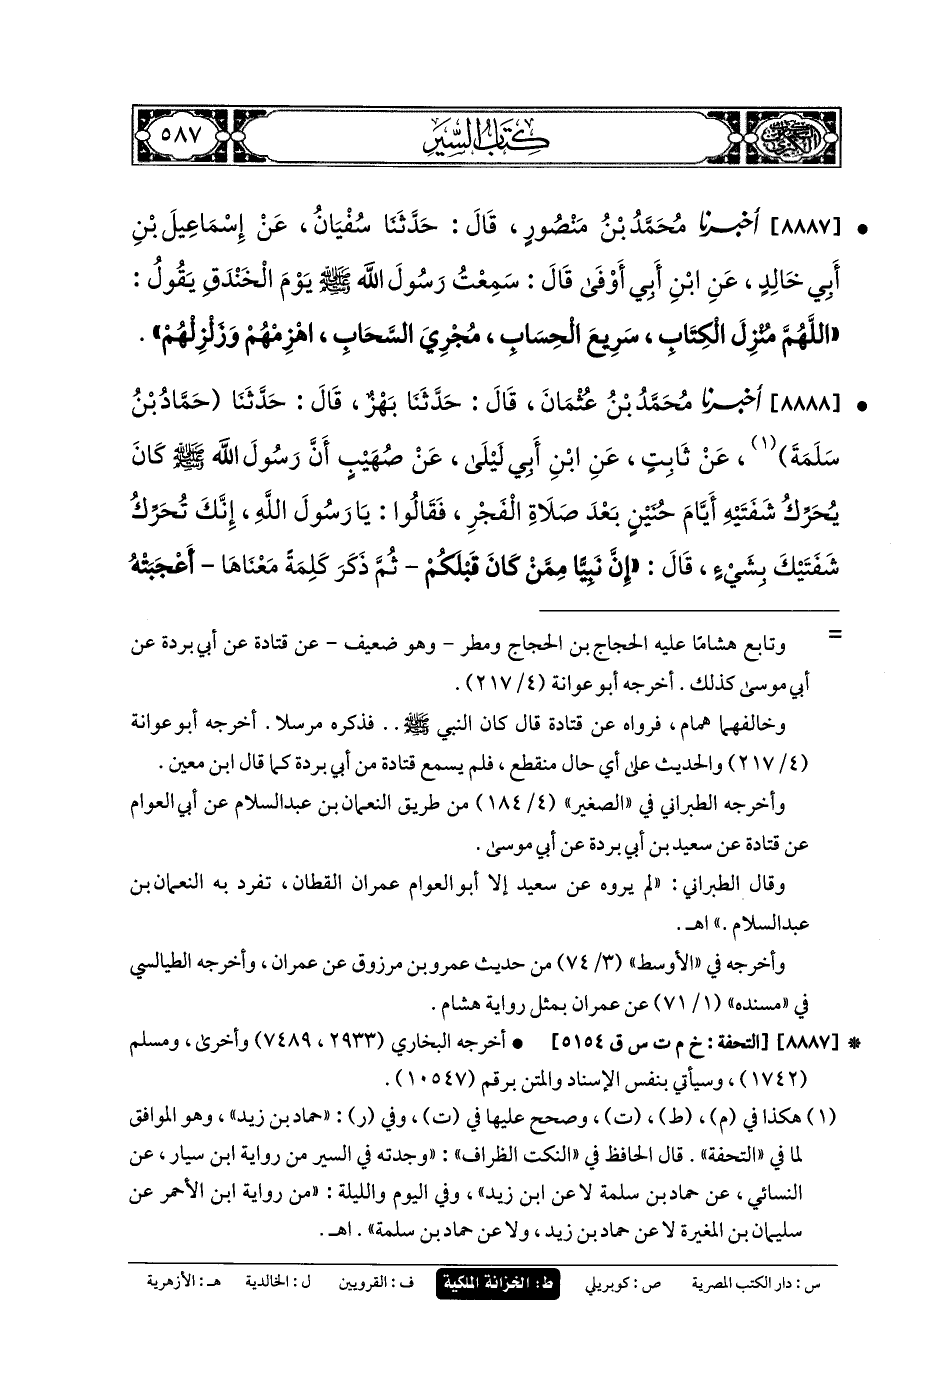 كتاب السير
٥٨٧
• [٨٨٨٧] أخبرنا مُحَمَّدُ بْنُ مَنْصُورٍ ، قَالَ : حَدَّثَنَا سُفْيَانُ ، عَنْ إِسْمَاعِيلَ بْنِ
أَبِي خَالِدٍ ، عَنِ ابْنِ أَبِي أَوْفَىٰ قَالَ : سَمِعْتُ رَسُولَ اللَّه ﷺ يَوْمَ الْخَنْدَقِ يَقُولُ :
«اللَّهُمَّ مُنْزِلَ الْكِتَابِ ، سَرِيعَ الْحِسَابِ ، مُجْرِيَ السَّحَابِ ، اهْزِمْهُمْ وَزَلْزِلْهُمْ» .
• [٨٨٨٨] أخبرنا مُحَمَّدُ بْنُ عُثْمَانَ ، قَالَ : حَدَّثَنَا بَهْزٌ ، قَالَ : حَدَّثَنَا (حَمَّادُ بْنُ
سَلَمَةَ)(١) ، عَنْ ثَابِتٍ ، عَنِ ابْنِ أَبِي لَيْلَىٰ ، عَنْ صُهَيْبٍ أَنَّ رَسُولَ اللَّه ﷺ كَانَ
يُحَرِّكُ شَفَتَيْهِ أَيَّامَ حُنَيْنٍ بَعْدَ صَلَاةِ الْفَجْرِ ، فَقَالُوا : يَا رَسُولَ اللَّهِ ، إِنَّكَ تُحَرِّكُ
شَفَتَيْكَ بِشَيْءٍ ، قَالَ : «إِنَّ نَبِيًّا مِمَّنْ كَانَ قَبْلَكُمْ - ثُمَّ ذَكَرَ كَلِمَةً مَعْنَاهَا - أَعْجَبَتْهُ
= وتابع هشامًا عليه الحجاج بن الحجاج ومطر - وهو ضعيف - عن قتادة عن أبي بردة عن
أبي موسىٰ كذلك . أخرجه أبو عوانة (٤/ ٢١٧) .
وخالفهما همام ، فرواه عن قتادة قال كان النبي ﷺ .. فذكره مرسلا . أخرجه أبو عوانة
(٤/ ٢١٧) والحديث علىٰ أي حال منقطع ، فلم يسمع قتادة من أبي بردة كما قال ابن معين .
وأخرجه الطبراني في «الصغير» (٤/ ١٨٤) من طريق النعمان بن عبدالسلام عن أبي العوام
عن قتادة عن سعيد بن أبي بردة عن أبي موسىٰ .
وقال الطبراني : «لم يروه عن سعيد إلا أبو العوام عمران القطان ، تفرد به النعمان بن
عبدالسلام .» اهـ .
وأخرجه في «الأوسط» (٣/ ٧٤) من حديث عمرو بن مرزوق عن عمران ، وأخرجه الطيالسي
في «مسنده» (١/ ٧١) عن عمران بمثل رواية هشام .
* [٨٨٨٧] [التحفة : خ م ت س ق ٥١٥٤] • أخرجه البخاري (٢٩٣٣ ، ٧٤٨٩) وأخرىٰ ، ومسلم
(١٧٤٢) ، وسيأتي بنفس الإسناد والمتن برقم (١٠٥٤٧) .
(١) هكذا في (م) ، (ط) ، (ت) ، وصحح عليها في (ت) ، وفي (ر) : «حماد بن زيد» ، وهو الموافق
لما في «التحفة» . قال الحافظ في «النكت الظراف» : «وجدته في السير من رواية ابن سيار ، عن
النسائي ، عن حماد بن سلمة لا عن ابن زيد» ، وفي اليوم والليلة : «من رواية ابن الأحمر عن
سليمان بن المغيرة لا عن حماد بن زيد ، ولا عن حماد بن سلمة» . اهـ .
س : دار الكتب المصرية ص : كوبريلي ط : الخزانة الملكية ف : القرويين ل : الخالدية هـ : الأزهرية